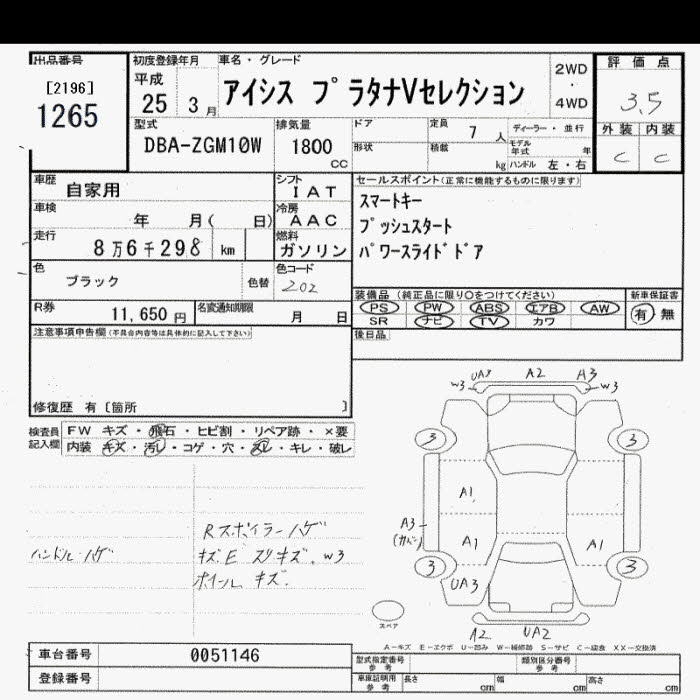 出品番号
[2196]
1265
初度登録年月
平成
25 3月
車名・グレード
アイシス プラタナVセレクション
2WD
・
4WD
評価点
3.5
外装 内装
C C
型式
DBA-ZGM10W
排気量
1800
CC
ドア
定員
7人
ディーラー・並行
形状
積載
kg
モデル年式
年
ハンドル 左・右
車歴
自家用
シフト
IAT
車検
年 月( 日)
冷房
AAC
走行
8万6千298 km
燃料
ガソリン
色
ブラック
色替
色コード
202
R券
11,650円
名変通知期限
月 日
セールスポイント(正常に機能するものに限ります)
スマートキー
プッシュスタート
パワースライドドア
装備品(純正品に限り○をつけてください)
新車保証書
PS PW ABS エアB AW
SR ナビ TV カワ
有 無
後日品
注意事項申告欄(不具合内容等は具体的に記入して下さい)
修復歴 有〔箇所 〕
検査員記入欄
FW キズ・飛石・ヒビ割・リペア跡・×要
内装 キズ・汚レ・コゲ・穴・スレ・キレ・破レ
ハンドル ハゲ
Rスポイラーハゲ
キズ.E スリキズ.W3
ホイール キズ.
UA3 A2 A3
W3 W3
3 3
A1
A3
(カバー)
A1 A1
3 3
UA3
A2 UA2
スペア
A-キズ E-エクボ U-凹み W-補修跡 S-サビ C-腐食 XX-交換済
車台番号
0051146
登録番号
型式指定番号
参考
類別区分番号
参考
車庫証明用
参考
長さ cm
幅 cm
高さ cm